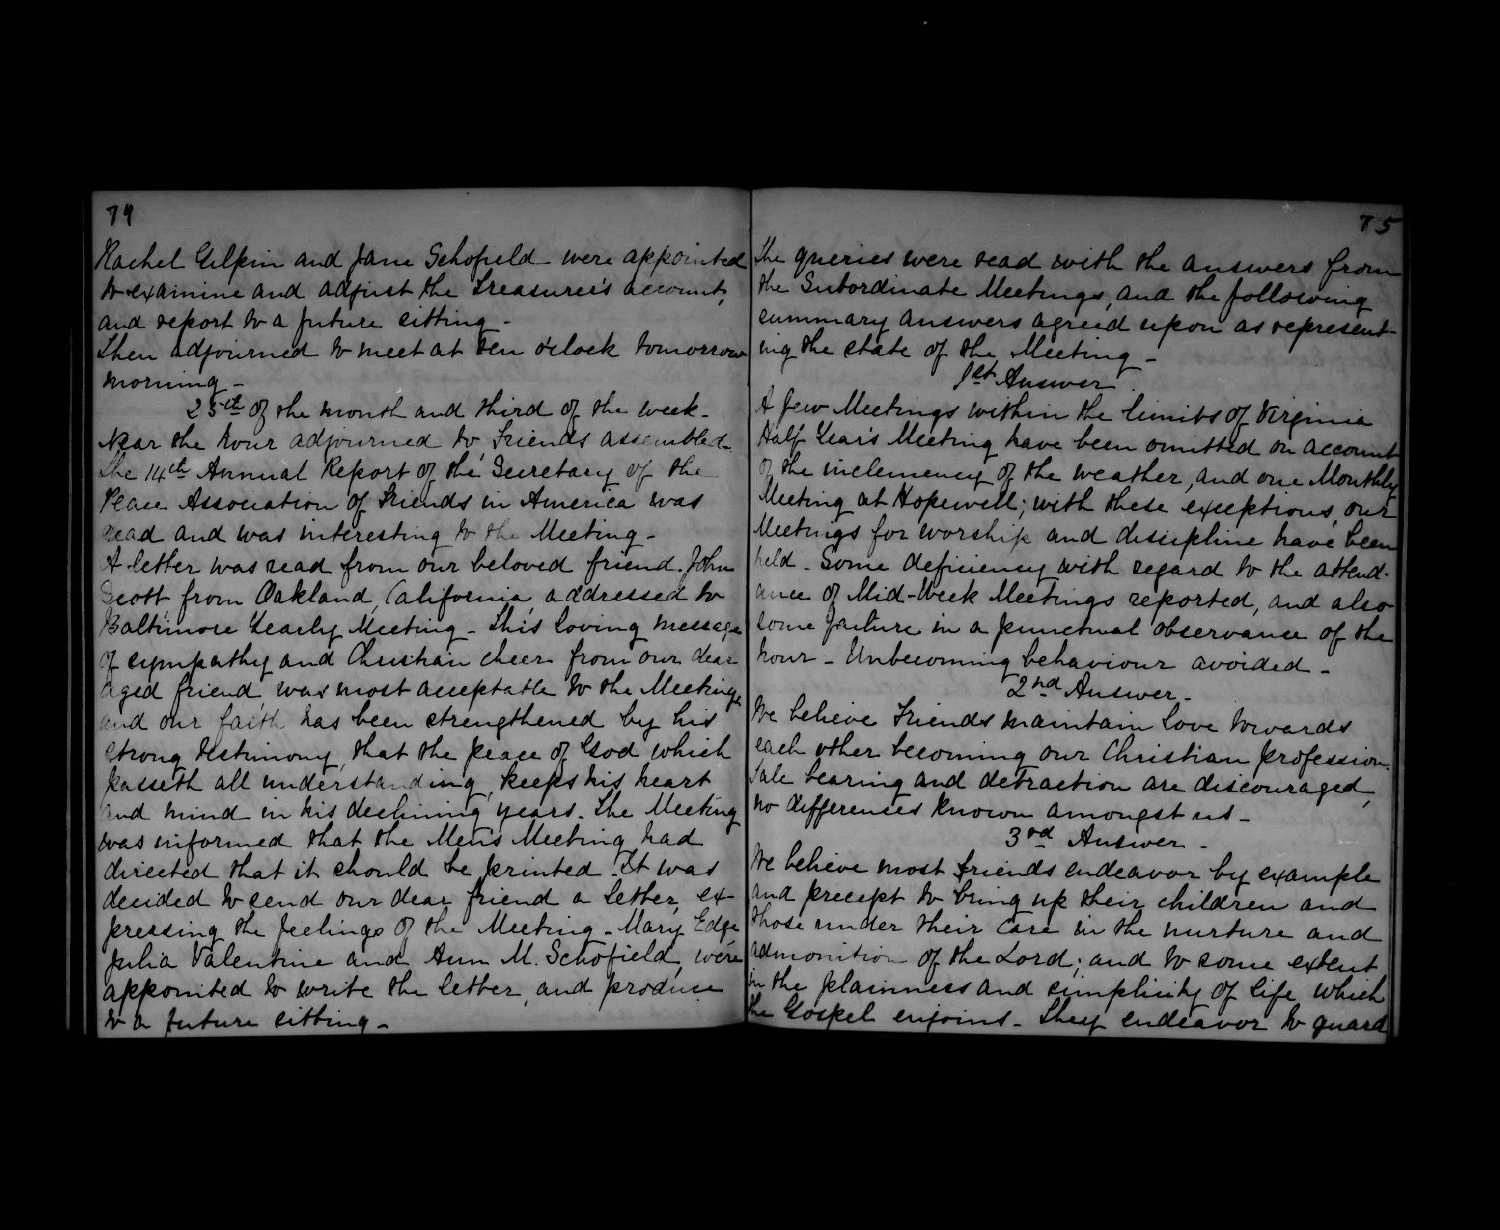 74
Rachel Gilpin and Jane Schofield were appointed
to examine and adjust the Treasurer's account,
and report to a future sitting -
Then adjourned to meet at ten o'clock tomorrow
morning -
25th of the month and third of the week -
Near the hour adjourned to Friends assembled -
The 14th Annual Report of the Secretary of the
Peace Association of Friends in America was
read and was interesting to the Meeting -
A letter was read from our beloved friend John
Scott from Oakland, California, addressed to
Baltimore Yearly Meeting - This loving message
of sympathy and Christian cheer from our dear
aged friend was most acceptable to the Meeting,
and our faith has been strengthened by his
strong testimony, that the peace of God which
passeth all understanding, keeps his heart
and mind in his declining years. The Meeting
was informed that the Men's Meeting had
directed that it should be printed. It was
decided to send our dear friend a letter, ex-
pressing the feelings of the Meeting - Mary Edge
Julia Valentine and Ann M. Schofield, were
appointed to write the letter, and produce
to a future sitting -
75
The queries were read with the answers from
the Subordinate Meetings, and the following
summary answers agreed upon as represent-
ing the state of the Meeting -
1st Answer
A few Meetings within the limits of Virginia
Half Year's Meeting have been omitted on account
of the inclemency of the weather, and one Monthly
Meeting at Hopewell; with these exceptions, our
Meetings for worship and discipline have been
held - Some deficiency with regard to the attend-
ance of Mid-Week Meetings reported, and also
some failure in a punctual observance of the
hour - Unbecoming behaviour avoided -
2nd Answer -
We believe Friends maintain love towards
each other becoming our Christian profession.
Tale bearing and detraction are discouraged,
no differences known amongst us -
3rd Answer -
We believe most Friends endeavor by example
and precept to bring up their children and
those under their care in the nurture and
admonition of the Lord; and to some extent
in the plainness and simplicity of life which
the Gospel enjoins - They endeavor to guard